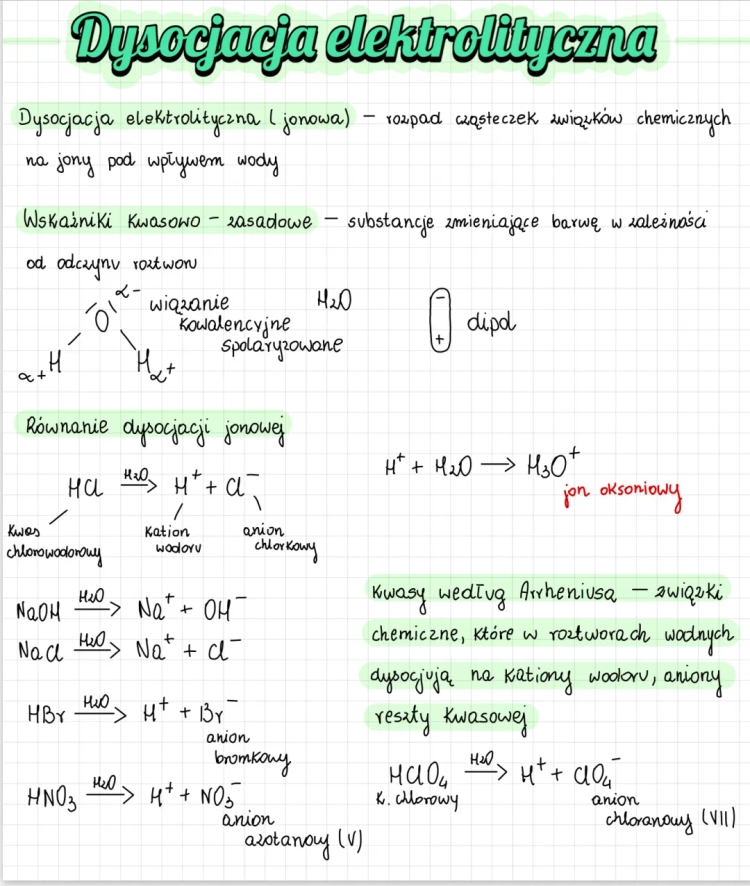 Dysocjacja elektrolityczna
Dysocjacja elektrolityczna (jonowa) – rozpad cząsteczek związków chemicznych
na jony pod wpływem wody
Wskaźniki kwasowo – zasadowe – substancje zmieniające barwę w zależności
od odczynu roztworu
α-
O
H
α+
H
α+
wiązanie
kowalencyjne
spolaryzowane
H₂O
-
+
dipol
Równanie dysocjacji jonowej
HCl —H₂O→ H⁺ + Cl⁻
kwas
chlorowodorowy
kation
wodoru
anion
chlorkowy
H⁺ + H₂O → H₃O⁺
jon oksoniowy
NaOH —H₂O→ Na⁺ + OH⁻
NaCl —H₂O→ Na⁺ + Cl⁻
HBr —H₂O→ H⁺ + Br⁻
anion
bromkowy
HNO₃ —H₂O→ H⁺ + NO₃⁻
anion
azotanowy (V)
Kwasy według Arrheniusa – związki
chemiczne, które w roztworach wodnych
dysocjują na kationy wodoru, aniony
reszty kwasowej
HClO₄ —H₂O→ H⁺ + ClO₄⁻
k. chlorowy
anion
chloranowy (VII)